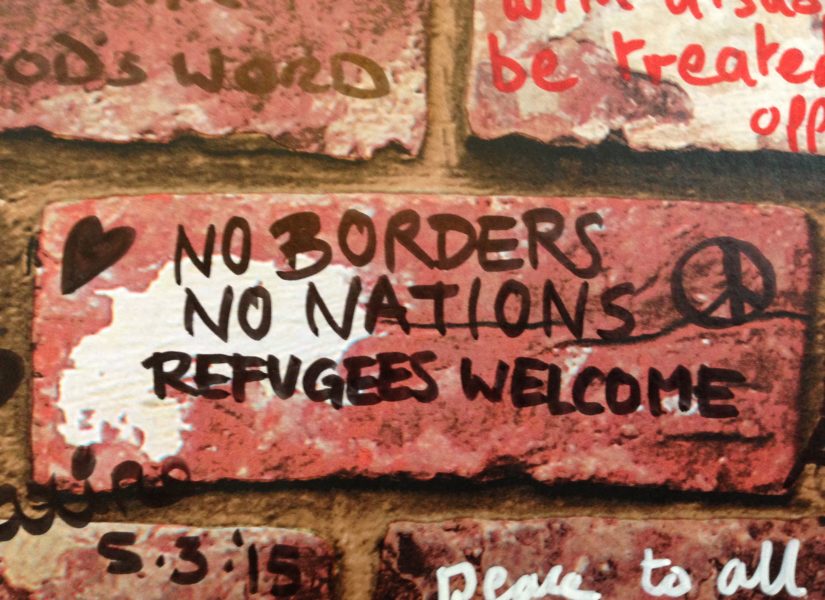 WORD
be treated
NO BORDERS
NO NATIONS
REFUGEES WELCOME
5.3.'15
Peace to all